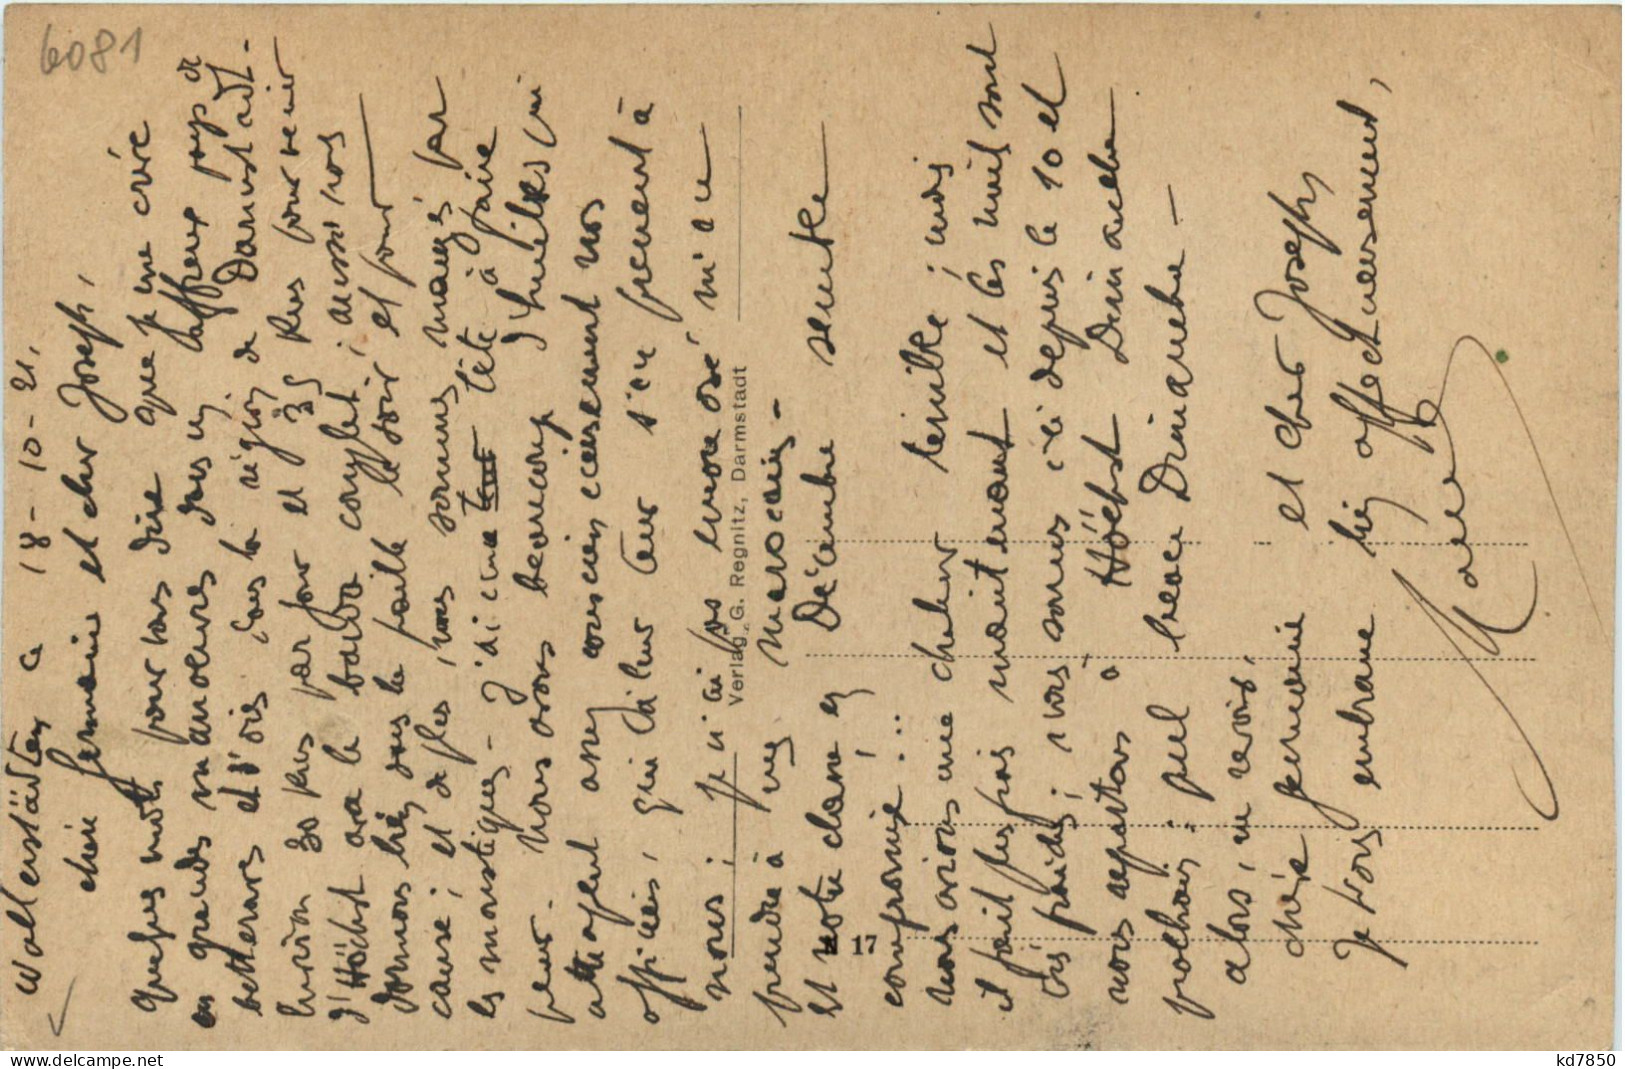 6081
Wallerstädten ce 18-10-21.
chère Germaine et cher Joseph,
quelques mots pour vous dire que je me crève
en grandes manoeuvres dans un affreux pays de
betteraves et d'oies dans la région de Darmstadt -
environ 30 kms par jour et 35 kms pour venir
d'Höchst avec le barda complet; aussi nous
dormons bien dans la paille le soir et pour
cause; et de plus, nous sommes mangés par
les moustiques - j'ai une tête à faire
peur. nous avons beaucoup d'huiles qui
attrapent assez consciencieusement nos
officiers, qui d'ailleur leur s'en prennent à
nous; je n'ai pas encore osé m'en
prendre à mes marocains -
et notre classe en Décembre semble
compromise!...
nous avions une chaleur terrible; mais
il fait très frais maintenant et les nuits sont
très froides; nous sommes ici depuis le 10 et
nous repartons à Höchst Dimanche
prochain: quel beau Dimanche -
alors, au revoir,
chère Germaine et cher Joseph
Je vous embrasse bien affectueusement,
Verlag G. Regnitz, Darmstadt
17
www.delcampe.net
kd7850